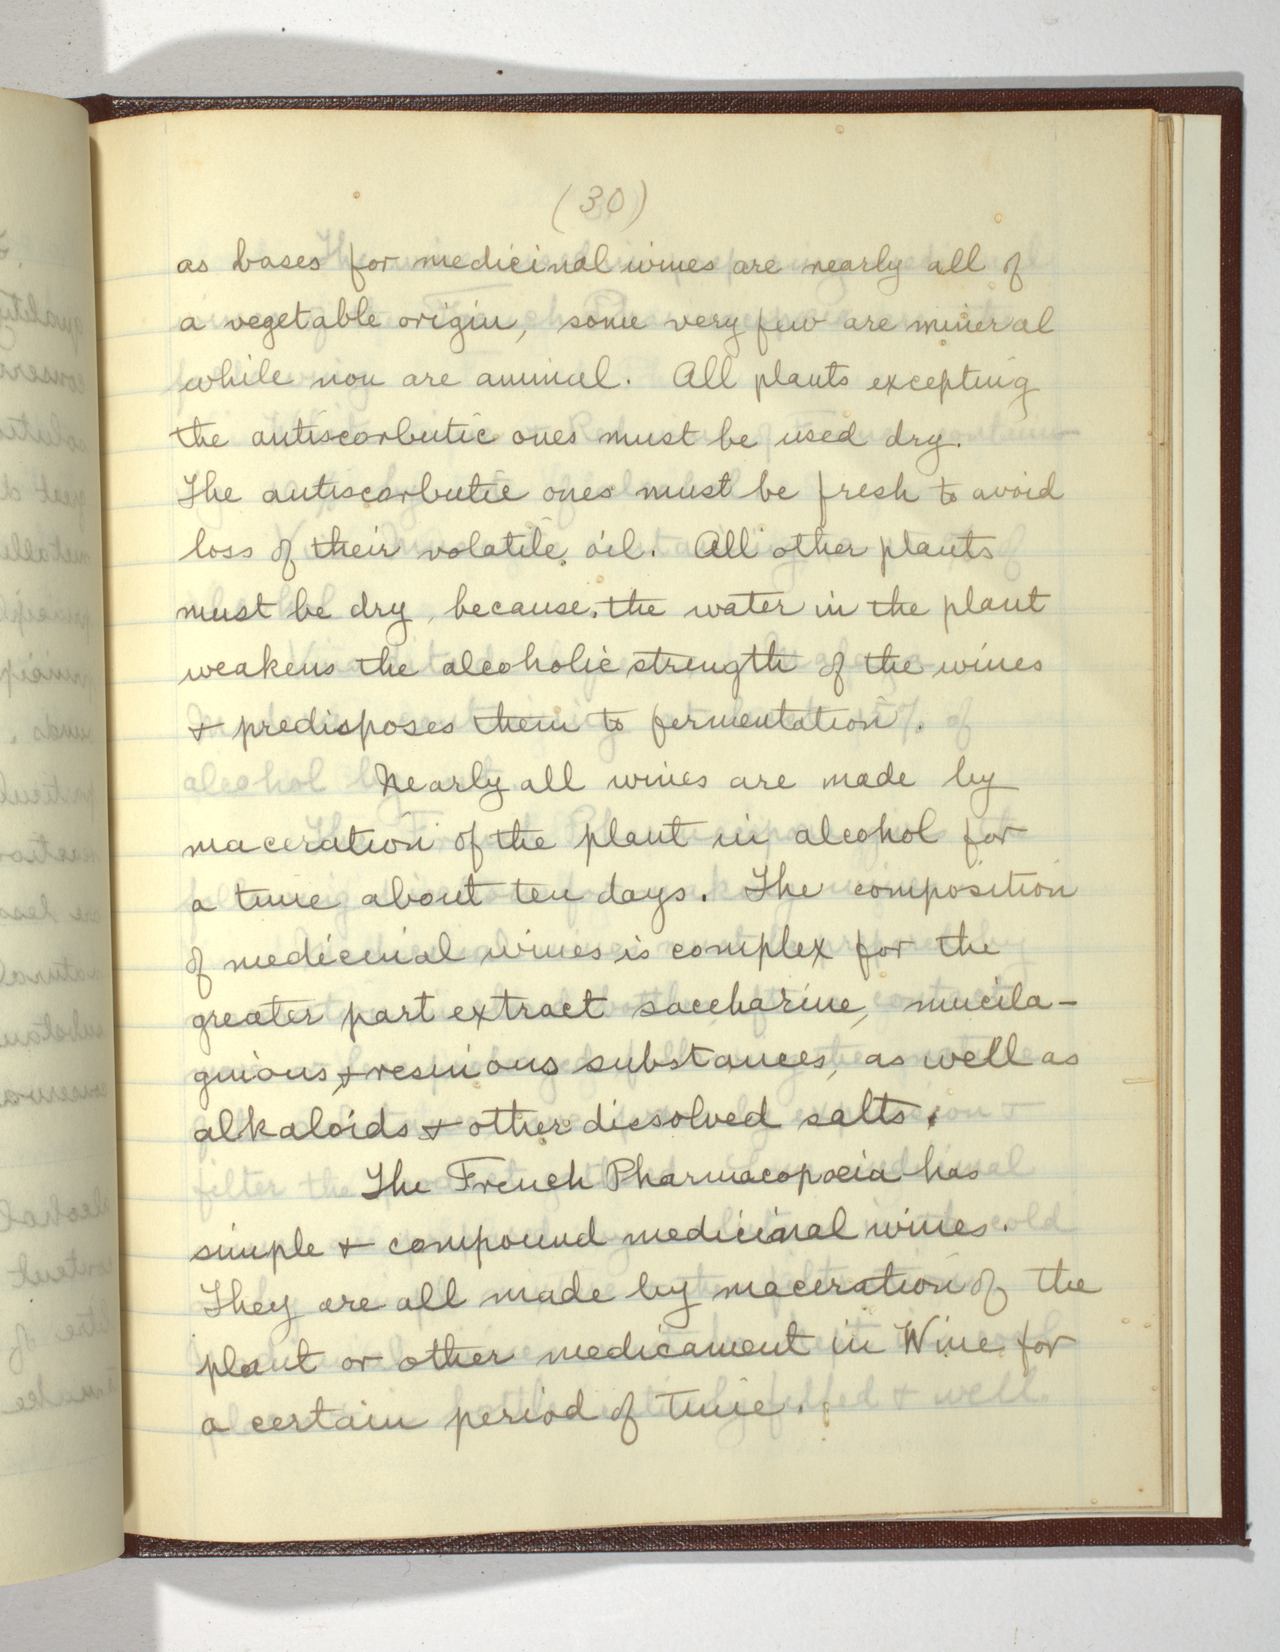 (30)
as bases for medicinal wines are nearly all of
a vegetable origin, some very few are mineral
while non are animal. All plants excepting
the antiscorbutic ones must be used dry.
The antiscorbutic ones must be fresh to avoid
loss of their volatile oil. All other plants
must be dry, because, the water in the plant
weakens the alcoholic strength of the wines
& predisposes them to fermentation.
Nearly all wines are made by
maceration of the plant in alcohol for
a time about ten days. The composition
of medicinial wines is complex for the
greater part extract saccharine, mucila-
ginious, & resinious substances, as well as
alkaloids & other dissolved salts.
The French Pharmacopoeia has
simple & compound medicinal wines.
They are all made by maceration of the
plant or other medicament in Wine for
a certain period of time.